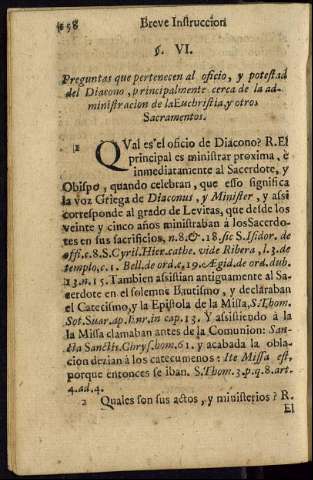 58 Breve Instruccion
§. VI.
Preguntas que pertenecen al oficio, y potestad
del Diacono, principalmente cerca de la ad-
ministracion de la Euchristia, y otros
Sacramentos.
1 QVal es el oficio de Diacono? R. El
principal es ministrar proxima, è
inmediatamente al Sacerdote, y
Obispo, quando celebran, que esso significa
la voz Griega de Diaconus, y Minister, y assi
corresponde al grado de Levitas, que desde los
veinte y cinco años ministraban à los Sacerdo-
tes en sus sacrificios, n. 8. & 18. sic S. Isidor. de
offi. c. 8. S. Cyril. Hier. cathe. vide Ribera, l. 3. de
templo, c. 1. Bell. de ord. c. 19. Ægid. de ord. dub.
13. n. 15. Tambien assistian antiguamente al Sa-
cerdote en el solemne Bautismo, y declaraban
el Catecismo, y la Epistola de la Missa, S. Thom.
Sot. Suar. ap. in cap. 13. Y assistiendo à la
la Missa clamaban antes de la Comunion: San-
cta Sanctis. Chrys. hom. 61. y acabada la obla-
cion dezian à los catecumenos: Ite Missa est,
porque entonces se iban. S. Thom. 3. p. q. 8. art.
4. ad. 4.
2 Quales son sus actos, y ministerios? R.
El